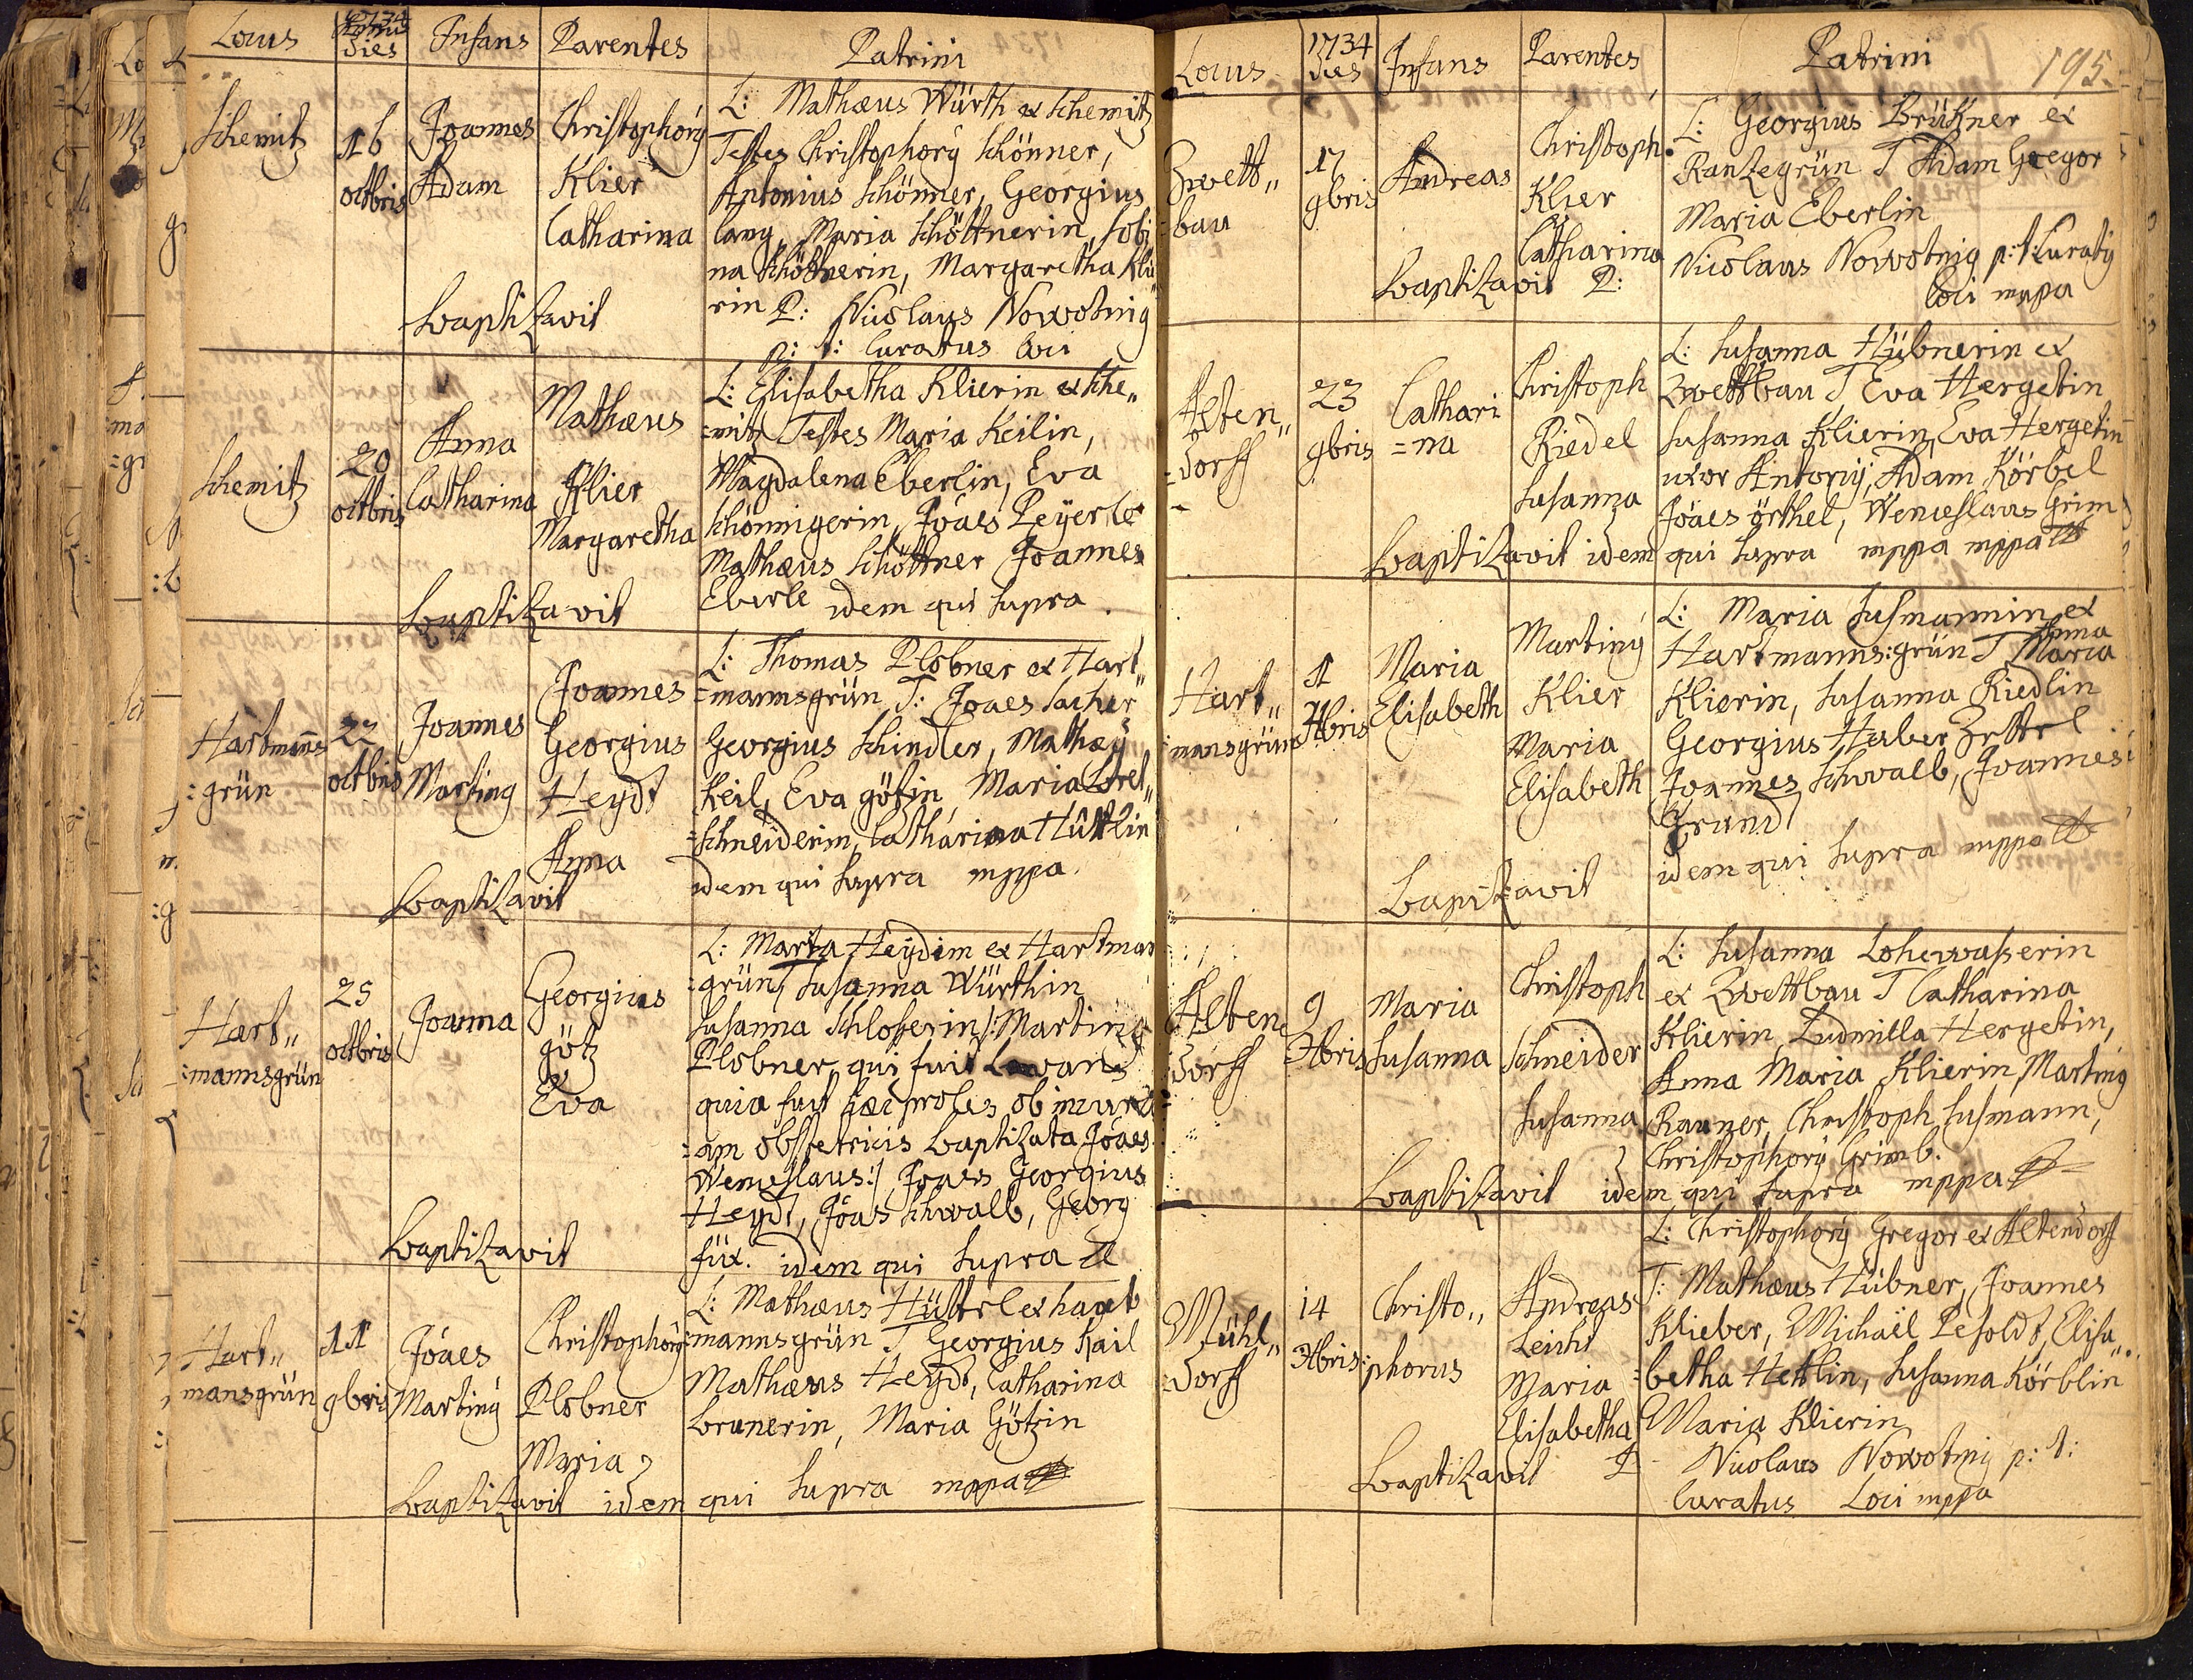 Locus 1734 Dies Infans Parentes Patrini
Schemitz
16
octbris
Joannes
Adam
Christophorq
Klier
Catharina
L: Mathæus Würth ex Schemitz
Testes Christophorq Schönner,
Antonius Schönner, Georgius
Lang, Maria Schöttnerin, Sobi
na Schöttnerin, Margaretha Kli"
rin P: Nicolaus Nowotnig
p: t: Curatus loci
baptizavit
Schemitz
20
octbris
Anna
Catharina
Mathæus
Klier
Margaretha
L: Elisabetha Klierin ex Sche"
=mitz Testes Maria Keilin,
Magdalena Eberlin, Eva
Schönnigerin, Jôaes Peyerle
Mathæus Schöttner Joannes
Eberle idem qui supra.
baptizavit
Hartmañs
:grün
23
octbris
Joannes
Martinq
Joannes
Georgius
Heydt
Anna
L: Thomas Plobner ex Hart"
=mannsgrün T: Joaes Sacher
Georgius Schindler, Mathæq
Keil, Eva götzin, Maria Bret"
=schneiderin, Catharina Hüttlin
idem qui supra mppa.
baptizavit
Hart"
:mannsgrün
25
octbris
Joanna
Georgius
götz
Eva
L: Marta Heydin ex Hartman
:grün T Susanna Würthin
Susanna Schloserin /: Martinq
Plobner, qui fuit Levans
quia fuit hæc proles ob incuri
:am obstetricis baptizata Jôaes
Wenceslaus :/ Joaes Georgius
Heydt, Jôas Schwalb, Georg
füx. idem qui supra
baptizavit
Hart"
mansgrün
11
9bris
Jôaes
Martinq
Christophorq
Plobner
Maria
L: Mathæus Hüttel ex hart
:mannsgrün T Georgius Kail
Mathæus Heydt, Catharina
Brunerin, Maria Götzin
baptizavit idem qui supra mppa
Locus 1734 dies Infans Parentes Patrini 195.
Zwett"
bau
17
9bris
Andreas
Christoph:
Klier
Catharina
L: Georgius Brükner ex
Ranzegrün T Adam Gregor
Maria Eberlin
Nicolaus Nowotnig p: t: Curatq
loci mppa
baptizavit P:
Alten"
=dorff
23
9bris
Cathari
=na
Christoph
Riedel
Susanna
L: Susanna Hübnerin ex
Zwettbau T Eva Hergetin
Susanna Klierin, Eva Hergetin
uxor Antonij, Adam Körbel
Jôaes örthel, Wenceslaus Grim
baptizavit idem qui supra mppa mppa
Hart"
:mansgrün
1
Xbris
Maria
Elisabeth
Martinq
Klier
Maria
Elisabeth
L: Maria Susmannin ex
Hartmanns:grün T Anna Maria
Klierin, Susanna Riedlin
Georgius Haber Zettel
Joannes Schwalb, Joannes
Grund
idem qui supra mppa
baptizavit
Alten
dorff
9
Xbris
Maria
Susanna
Christoph
Schneider
Susanna
L: Susanna Lohewasserin
ex Zwettbau T Catharina
Klierin, Ludmilla Hergetin,
Anna Maria Klierin, Martinq
Rauner, Christoph Susmann,
Christophorq Grimb.
baptizavit idem qui supra mppa
Mühl"
:dorff
14
Xbris
Christo"
:phorus
Andreas
Leicht
Maria
Elisabetha
L: Christophorq Gregor ex Altendorff
T: Mathæus Hübner, Joannes
Klieber, Michaël Pesoldt, Elisa"
:betha Hettlin, Susanna Körblin
Maria Klierin
baptizavit P Nicolaus Nowotnig p: t:
Curatus Loci mppa